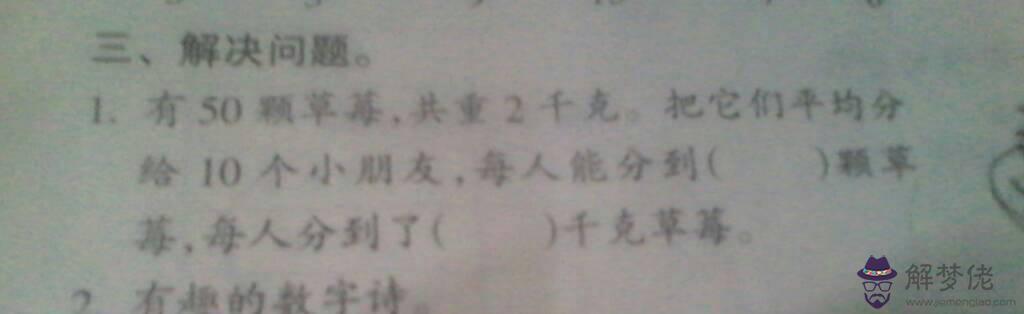 三、解决问题。
1. 有 50 颗草莓,共重 2 千克。把它们平均分
给 10 个小朋友,每人能分到( )颗草
莓,每人分到了( )千克草莓。
2. 有趣的数字诗。
解梦佬
www.jiemenglao.com